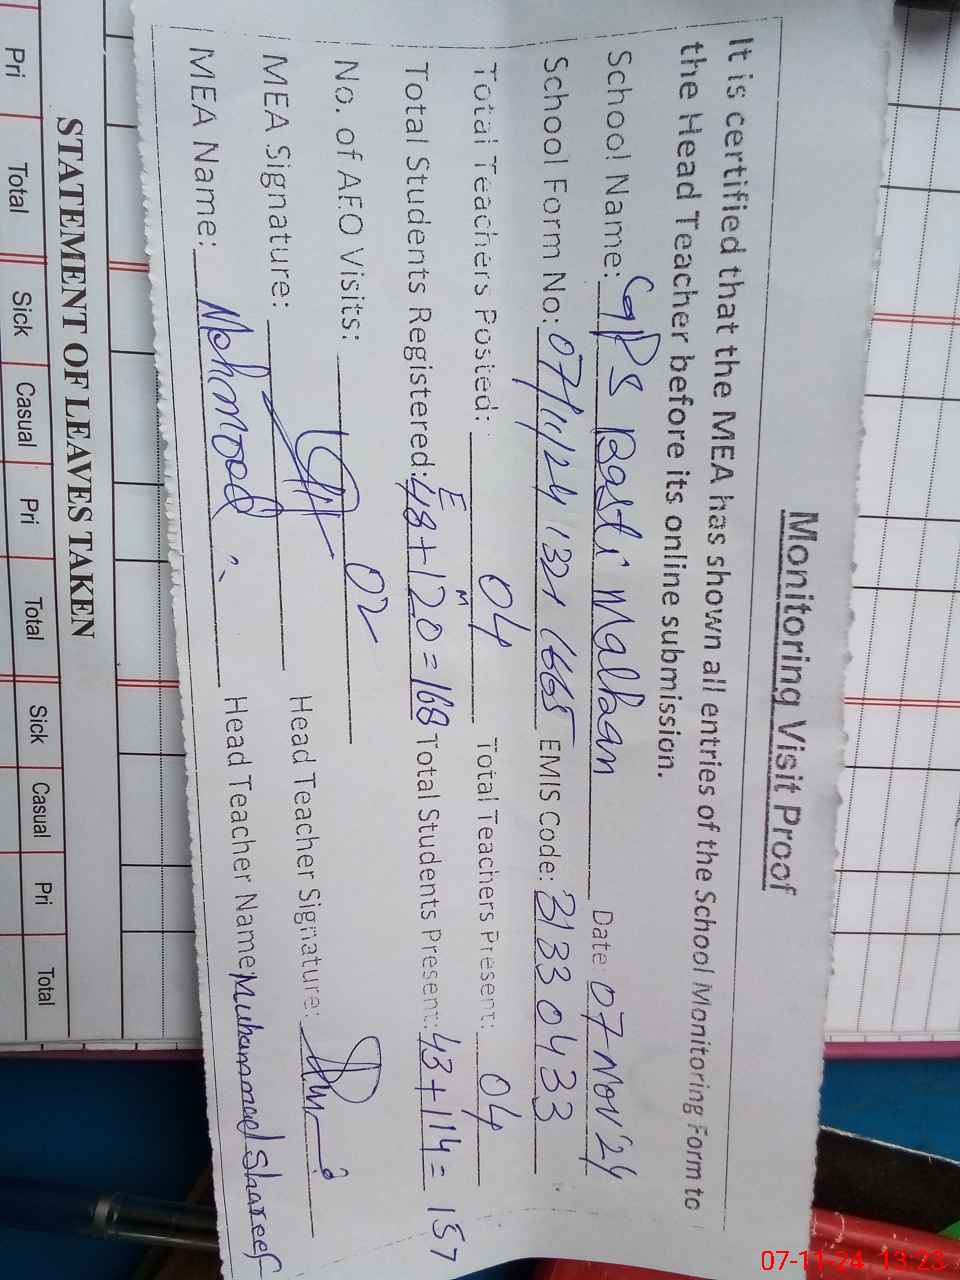 Monitoring Visit Proof
It is certified that the MEA has shown all entries of the School Monitoring Form to
the Head Teacher before its online submission.
School Name: GPS Basti Malhaan Date: 07 Nov 24
School Form No: 07/11/24 1321 1665 EMIS Code: 31330433
Total Teachers Posted: 04 Total Teachers Present: 04
E M
Total Students Registered: 48+120=168 Total Students Present: 43+114= 157
No. of AEO Visits: 02
MEA Signature: Head Teacher Signature:
MEA Name: Mehmood Head Teacher Name: Muhammad Shareef
STATEMENT OF LEAVES TAKEN
Pri Total Sick Casual Pri Total Sick Casual Pri Total
07-11-24 13:23